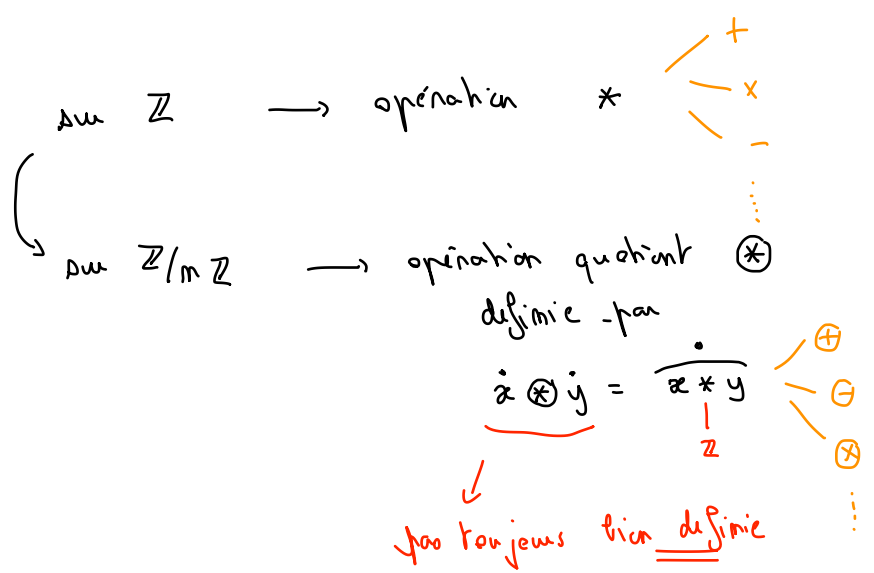 sur ℤ → opération * + × -
sur ℤ/nℤ → opération quotient ⊛
définie par
ẋ ⊛ ẏ = \dot{\overline{x * y}} ⊕ ⊖ ⊗
ℤ
pas toujours bien définie